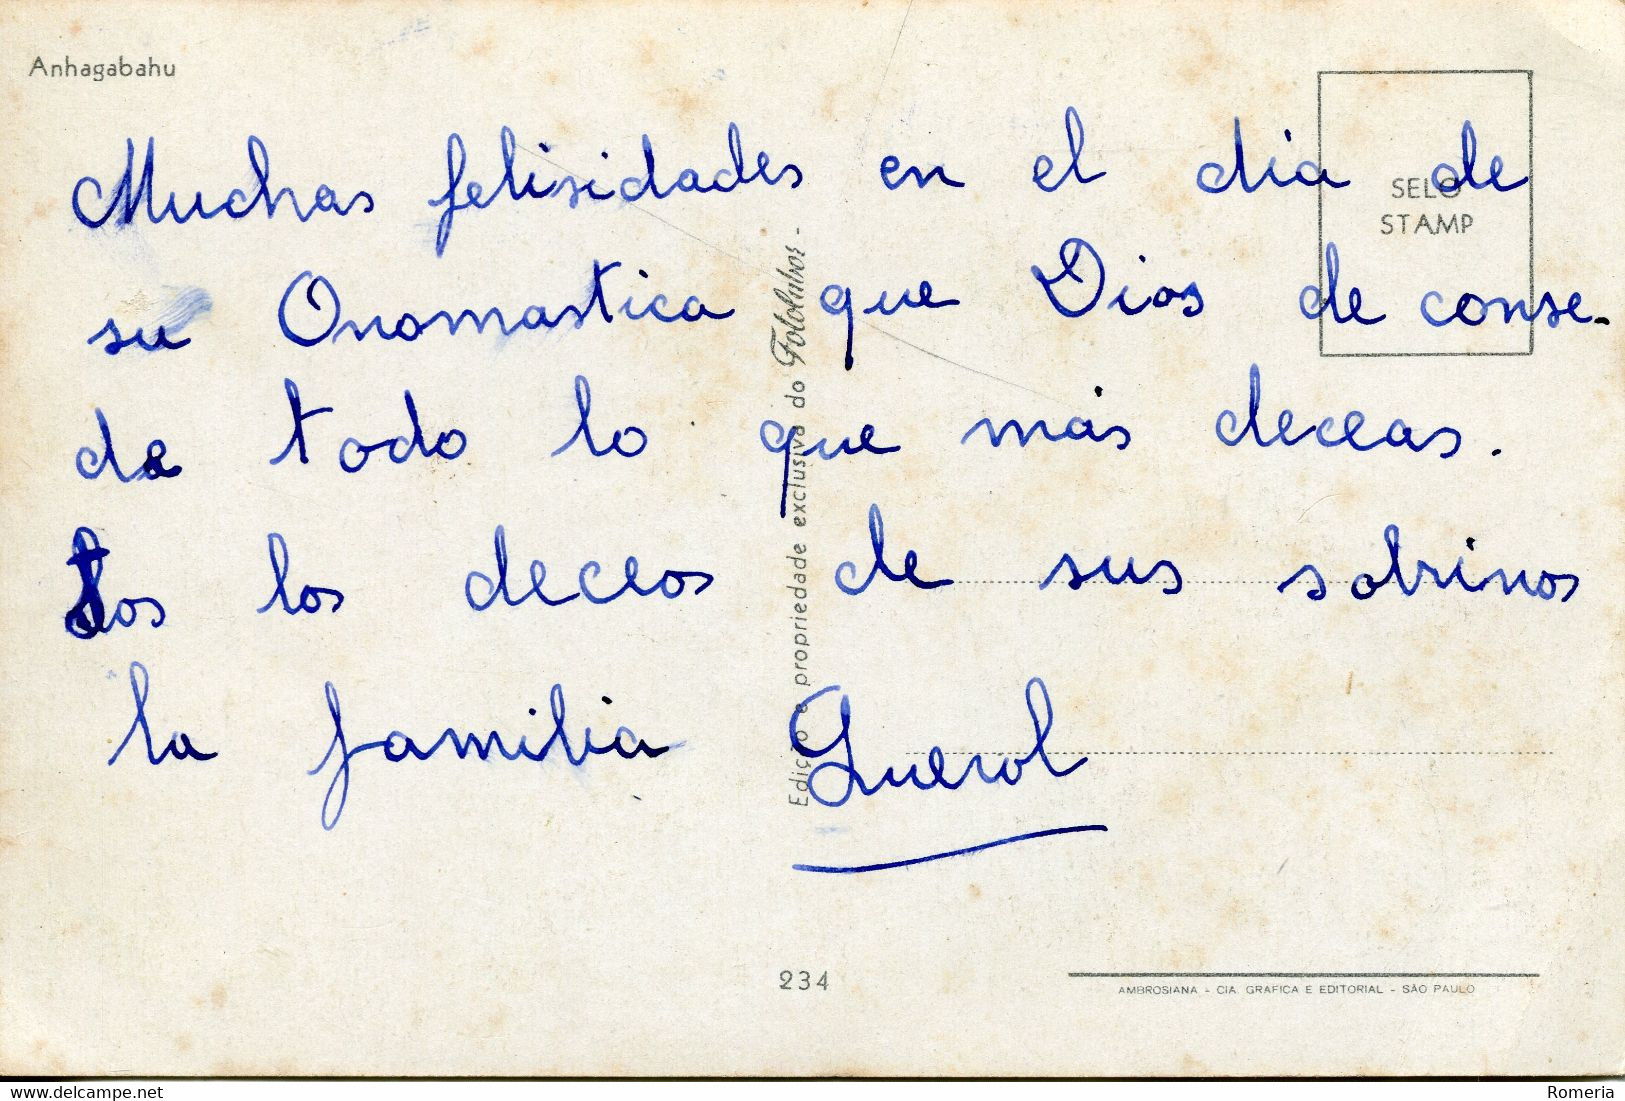 Anhagabahu
SELO
STAMP
Muchas felisidades en el dia de
su Onomastica que Dios de conse-
da todo lo que más deceas.
los deceos de sus sobrinos
la familia Querol
Edição e propriedade exclusiva do Fotolabor -
234
AMBROSIANA - CIA. GRAFICA E EDITORIAL - SÃO PAULO
delcampe.net
Romeria